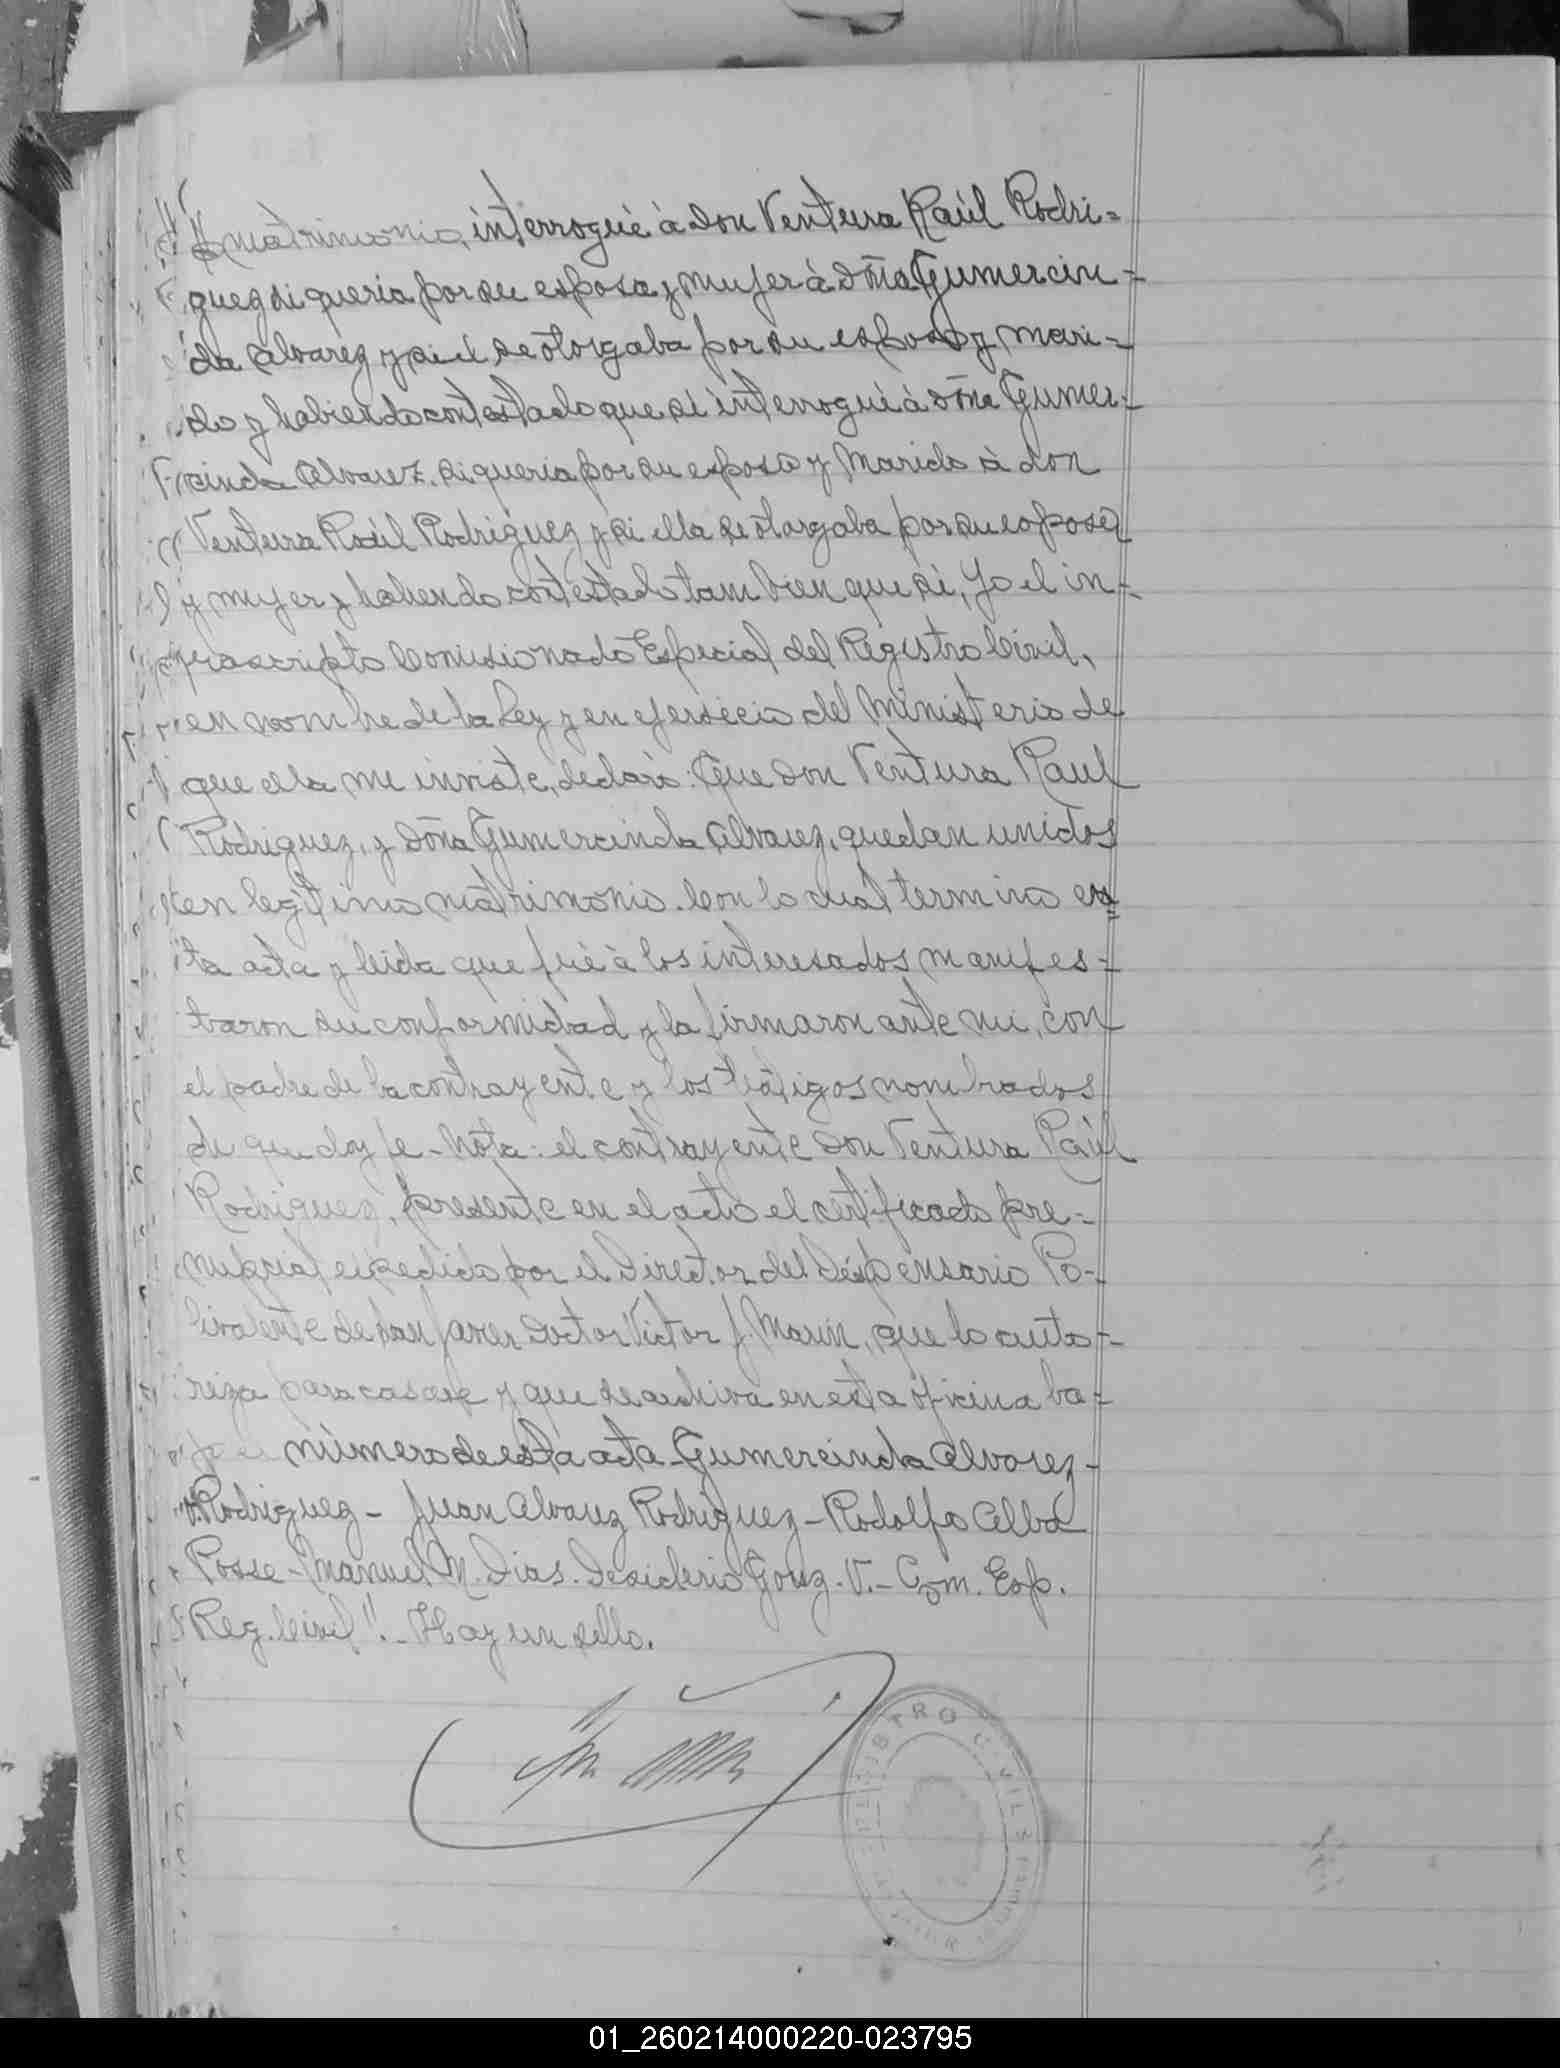 matrimonio, interrogué à don Ventura Raúl Rodri=
guez si queria por su esposa y mujer à doña Gumercin=
da Alvarez y si él se otorgaba por su esposo y mari=
do y habiendo contestado que si interrogué à doña Gumer=
cinda Alvarez. si queria por su esposo y marido à don
Ventura Raúl Rodriguez y si ella se otorgaba por su esposa
y mujer y habiendo contestado tambien que si, Yo el in=
frascripto Comisionado Especial del Registro Civil,
en nombre de la Ley y en ejersicio del Ministerio de
que ella me inviste, declaro: Que don Ventura Raul
Rodriguez, y doña Gumercinda Alvarez, quedan unidos
en legitimo matrimonio. Con lo cual termino es=
ta acta y leida que fué à los interesados manifes=
taron su conformidad y la firmaron ante mi, con
el padre de la contrayente y los testigos nombrados
de que doy fe - Nota: el contrayente don Ventura Raúl
Rodriguez, presente en el acto el certificado pre=
nupcial expedido por el Director del Dispensario Po-
livalente de San Javier Doctor Victor J. Marin, que lo auto=
riza para casarse y que se archiva en esta oficina ba=
jo el número de esta acta - Gumercinda Alvarez -
Rodriguez - Juan Alvarez Rodriguez - Rodolfo Alba
Posse - Manuel M. Dias. Desiderio Gonz. V. - Com. Esp.
Reg. Civil". - Hay un sello.
REGISTRO CIVIL